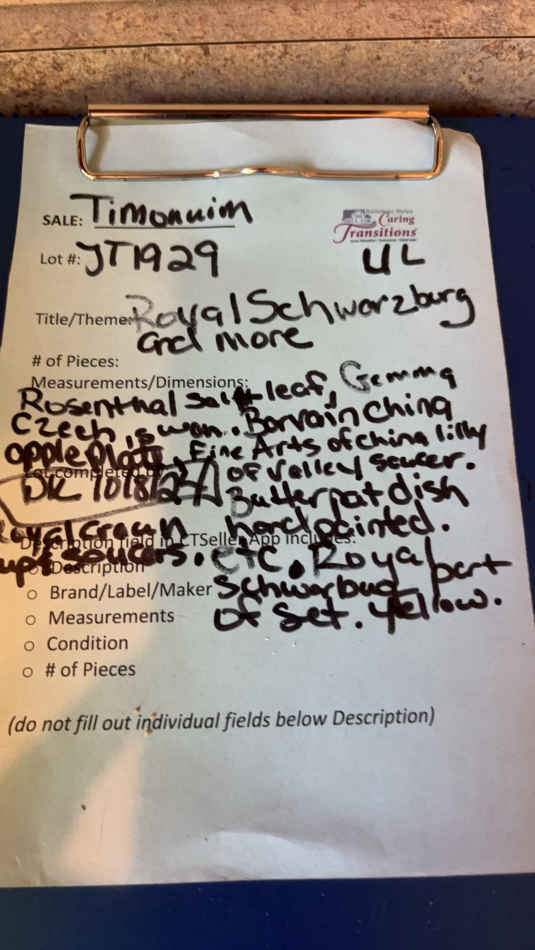 SALE: Timonuim
Caring
Transitions
Lot #: JT1929
UL
Title/Theme: Royal Schwarzburg
and more
# of Pieces:
Measurements/Dimensions:
Rosenthal salt leaf, Gemma
Czech is won. Barvain China
apple plate, Fine Arts of china lilly
of valley saucer.
DK 10/8/24
Butter pat dish
Royal Crown hand painted.
Description field in CTSeller App includes:
cups saucers. etc. Royal
Schwarburg part
of set. yellow.
○ Description
○ Brand/Label/Maker
○ Measurements
○ Condition
○ # of Pieces
(do not fill out individual fields below Description)